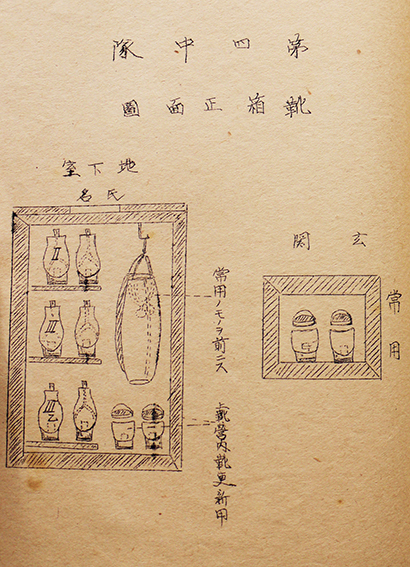 第四中隊
靴箱正面圖
地下室
氏名
II
III
III
乙
常用ノモノヲ前ニス
上靴営内靴更新用
玄関
常用